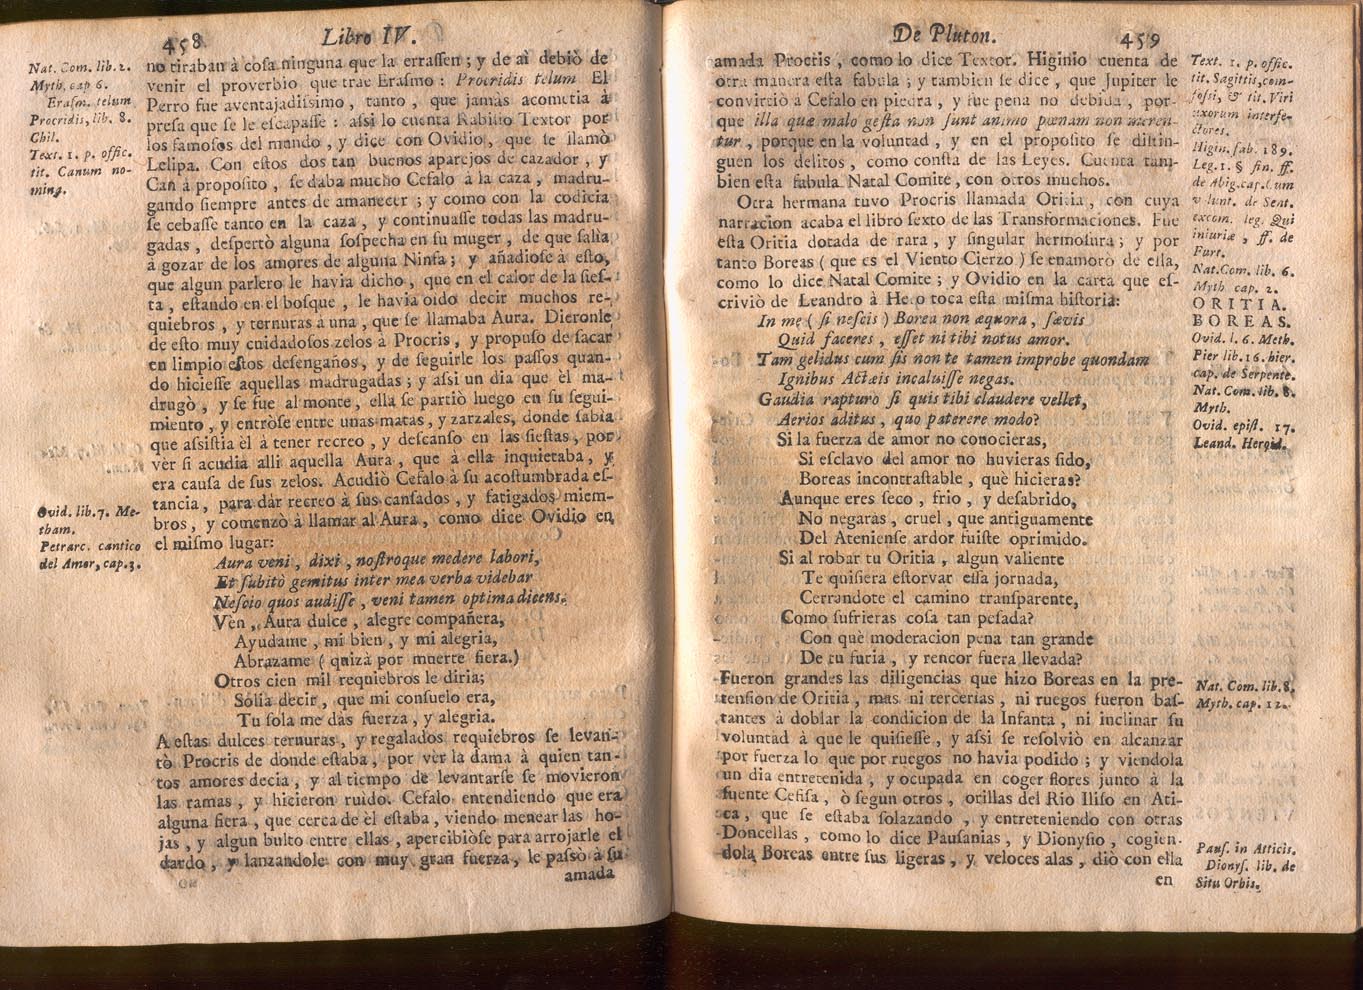 458
Libro IV.
Nat. Com. lib. 2.
Myth. cap 6.
Erasm. telum
Procridis, lib. 8.
Chil.
Text. 1. p. offic.
tit. Canum no-
ming.
no tiraban à cosa ninguna que la errassen; y de aì debiò de
venir el proverbio que trae Erasmo: Procridis telum El
Perro fue aventajadissimo, tanto, que jamàs acometia à
presa que se le escapasse: assi lo cuenta Rabisio Textor por
los famosos del mundo, y dice con Ovidio, que se llamò
Lelipa. Con estos dos tan buenos aparejos de cazador, y
Can à proposito, se daba mucho Cefalo à la caza, madru-
gando siempre antes de amanecer; y como con la codicia
se cebasse tanto en la caza, y continuasse todas las madru-
gadas, despertò alguna sospecha en su muger, de que salìa
à gozar de los amores de alguna Ninfa; y añadiose à esto,
que algun parlero le havia dicho, que en el calor de la sies-
ta, estando en el bosque, le havia oido decir muchos re-
quiebros, y ternuras à una, que se llamaba Aura. Dieronle
de esto muy cuidadosos zelos à Procris, y propuso de sacar
en limpio estos desengaños, y de seguirle los passos quan-
do hiciesse aquellas madrugadas; y assi un dia que èl ma-
drugò, y se fue al monte, ella se partiò luego en su segui-
miento, y entròse entre unas matas, y zarzales, donde sabìa
que assistia èl à tener recreo, y descanso en las siestas, por
vèr si acudia alli aquella Aura, que à ella inquietaba, y
era causa de sus zelos. Acudiò Cefalo à su acostumbrada es-
tancia, para dàr recreo à sus cansados, y fatigados miem-
bros, y comenzò à llamar al Aura, como dice Ovidio en
el mismo lugar:
Ovid. lib. 7. Me-
tham.
Petrarc. cantico
del Amor, cap. 3.
Aura veni, dixi, nostroque medere labori,
Et subitò gemitus inter mea verba videbar
Nescio quos audisse, veni tamen optima dicens.
Vèn, Aura dulce, alegre compañera,
Ayudame, mi bien, y mi alegria,
Abrazame (quizà por muerte fiera.)
Otros cien mil requiebros le diria;
Sòlia decir, que mi consuelo era,
Tu sola me dàs fuerza, y alegria.
A estas dulces ternuras, y regalados requiebros se levan-
tò Procris de donde estaba, por vèr la dama à quien tan-
tos amores decia, y al tiempo de levantarse se movieron
las ramas, y hicieron ruido. Cefalo entendiendo que era
alguna fiera, que cerca de èl estaba, viendo menear las ho-
jas, y algun bulto entre ellas, apercibiòse para arrojarle el
dardo, y lanzandole con muy gran fuerza, le passò à su
amada
De Pluton.
459
amada Procris, como lo dice Textor. Higinio cuenta de
otra manera esta fabula; y tambien se dice, que Jupiter le
convirtiò à Cefalo en piedra, y fue pena no debida, por-
que illa quæ malo gesta non sunt animo pœnam non meren-
tur, porque en la voluntad, y en el proposito se distin-
guen los delitos, como consta de las Leyes. Cuenta tam-
bien esta fabula Natal Comite, con otros muchos.
Otra hermana tuvo Procris llamada Oritia, con cuya
narracion acaba el libro sexto de las Transformaciones. Fue
esta Oritia dotada de rara, y singular hermosura; y por
tanto Boreas (que es el Viento Cierzo) se enamorò de ella,
como lo dice Natal Comite; y Ovidio en la carta que es-
criviò de Leandro à Hero toca esta misma historia:
In me (si nescis) Borea non æquora, sævis
Quid faceres, esset ni tibi notus amor.
Tam gelidus cum sis non te tamen improbe quondam
Ignibus Actæis incaluisse negas.
Gaudia rapturo si quis tibi claudere vellet,
Aerios aditus, quo paterere modo?
Si la fuerza de amor no conocieras,
Si esclavo del amor no huvieras sido,
Boreas incontrastable, què hicieras?
Aunque eres seco, frio, y desabrido,
No negaras, cruel, que antiguamente
Del Ateniense ardor fuiste oprimido.
Si al robar tu Oritia, algun valiente
Te quisiera estorvar essa jornada,
Cerrandote el camino transparente,
Como sufrieras cosa tan pesada?
Con què moderacion pena tan grande
De tu furia, y rencor fuera llevada?
Fueron grandes las diligencias que hizo Boreas en la pre-
tension de Oritia, mas ni tercerias, ni ruegos fueron bas-
tantes à doblar la condicion de la Infanta, ni inclinar su
voluntad à que le quisiesse, y assi se resolviò en alcanzar
por fuerza lo que por ruegos no havia podido; y viendola
un dia entretenida, y ocupada en coger flores junto à la
fuente Cefisa, ò segun otros, orillas del Rio Iliso en Ati-
ca, que se estaba solazando, y entreteniendo con otras
Doncellas, como lo dice Pausanias, y Dionysio, cogien-
dola Boreas entre sus ligeras, y veloces alas, diò con ella
en
Text. 1. p. offic.
tit. Sagittis, con-
fossi, & tit. Viri
uxorum interfe-
ctores.
Higin. fab. 189.
Leg. 1. § fin. ff.
de Abig. cap. Cum
v lunt. dr Sent.
excom. leg. Qui
iniuriæ, ff. de
Furt.
Nat. Com. lib. 6.
Myth cap. 2.
ORITIA.
BOREAS.
Ovid. l. 6. Meth.
Pier lib. 16. hier.
cap. de Serpente.
Nat. Com. lib. 8.
Myth.
Ovid. epist. 17.
Leand. Heroid.
Nat. Com. lib. 8.
Myth. cap. 12.
Paus. in Atticis.
Dionys. lib. de
Situ Orbis.